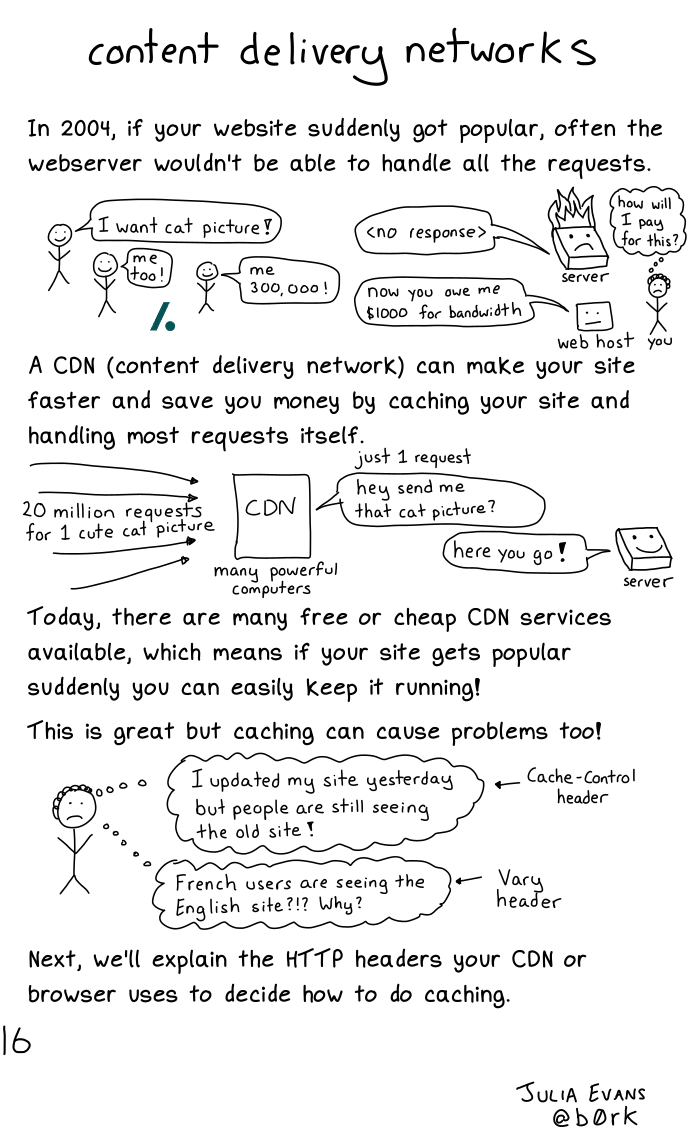 content delivery networks
In 2004, if your website suddenly got popular, often the
webserver wouldn't be able to handle all the requests.
I want cat picture!
me
too!
me
300,000!
/.
<no response>
server
how will
I pay
for this?
now you owe me
$1000 for bandwidth
web host
you
A CDN (content delivery network) can make your site
faster and save you money by caching your site and
handling most requests itself.
20 million requests
for 1 cute cat picture
CDN
many powerful
computers
just 1 request
hey send me
that cat picture?
here you go!
server
Today, there are many free or cheap CDN services
available, which means if your site gets popular
suddenly you can easily keep it running!
This is great but caching can cause problems too!
I updated my site yesterday
but people are still seeing
the old site!
Cache-Control
header
French users are seeing the
English site?!? Why?
Vary
header
Next, we'll explain the HTTP headers your CDN or
browser uses to decide how to do caching.
16
JULIA EVANS
@b0rk